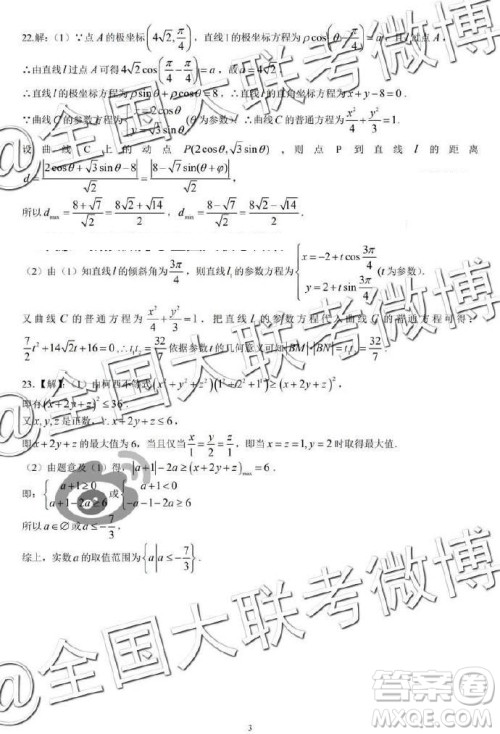 22.解:(1)∵点 A 的极坐标(4√2, π/4), 直线 l 的极坐标方程为 ρcos(θ-π/4)=a, 且 l 过点 A,
∴由直线 l 过点 A 可得 4√2cos(π/4-π/4)=a, 故 a=4√2
∴直线 l 的极坐标方程为 ρsinθ+ρcosθ=8, ∴直线 l 的直角坐标方程为 x+y-8=0.
∵曲线 C 的参数方程为{x=2cosθ y=√3sinθ (θ为参数), ∴曲线 C 的普通方程为 x²/4+y²/3=1.
设曲线 C 上的动点 P(2cosθ,√3sinθ), 则点 P 到直线 l 的距离
d=|2cosθ+√3sinθ-8|/√2=|8-√7sin(θ+φ)|/√2,
所以 dmax=(8+√7)/√2=(8√2+√14)/2, dmin=(8-√7)/√2=(8√2-√14)/2.
(2)由(1)知直线 l 的倾斜角为 3π/4, 则直线 l₁ 的参数方程为{x=-2+tcos3π/4 y=tsin3π/4 (t 为参数).
又曲线 C 的普通方程为 x²/4+y²/3=1, 把直线 l₁ 的参数方程代入曲线 C 的普通方程可得:
7/2t²+14√2t+16=0, ∴t₁t₂=32/7, 依据参数 t 的几何意义可知|BM|·|BN|=|t₁t₂|=32/7.
23.【解】:(1)由柯西不等式(x²+y²+z²)(1²+2²+1²)≥(x+2y+z)²,
即有(x+2y+z)²≤36.
又 x,y,z 是正数, ∴x+2y+z≤6,
即 x+2y+z 的最大值为 6, 当且仅当 x/1=y/2=z/1, 即当 x=z=1,y=2 时取得最大值.
(2)由题意及(1)得, |a+1|-2a≥(x+2y+z)max=6.
即:{a+1≥0 a+1-2a≥6 或{a+1<0 -a-1-2a≥6,
所以 a∈∅ 或 a≤-7/3.
综上, 实数 a 的取值范围为{a|a≤-7/3}.
@全国大联考微博
@全国大联考微博
答案圈
MXQE.COM
3